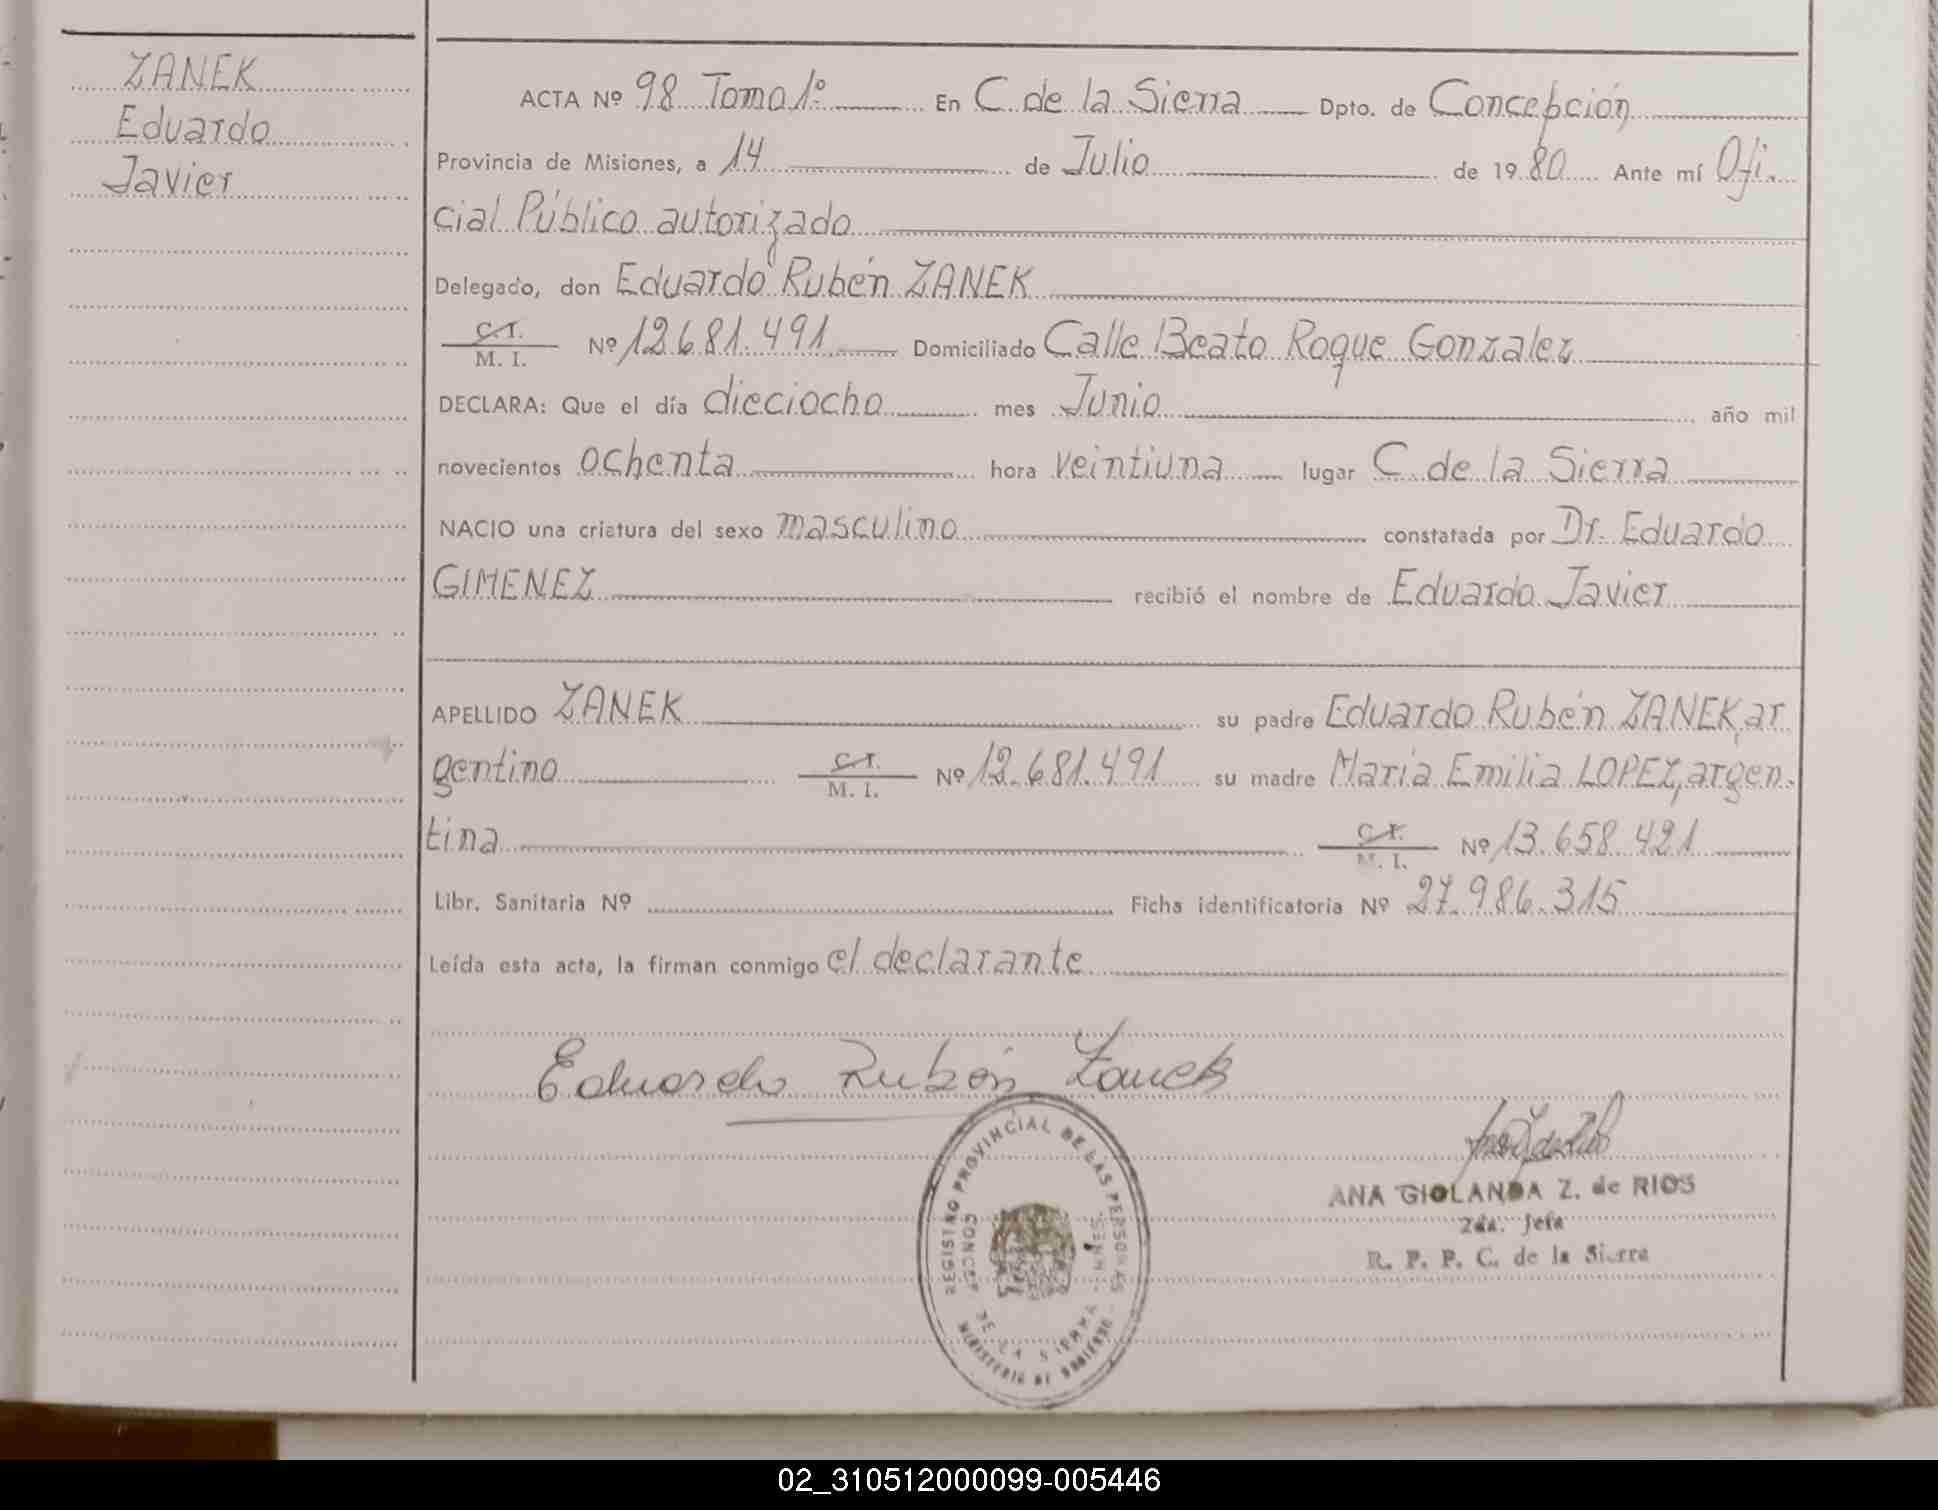 ZANEK
Eduardo
Javier
ACTA Nº 98 Tomo 1º En C. de la Sierra Dpto. de Concepción
Provincia de Misiones, a 14 de Julio de 1980 Ante mí Ofi-
cial Público autorizado
Delegado, don Eduardo Rubén ZANEK
C.I.
M. I. Nº 12.681.491 Domiciliado Calle Beato Roque Gonzalez
DECLARA: Que el día dieciocho mes Junio año mil
novecientos ochenta hora veintiuna lugar C. de la Sierra
NACIO una criatura del sexo masculino constatada por Dr. Eduardo
GIMENEZ recibió el nombre de Eduardo Javier
APELLIDO ZANEK su padre Eduardo Rubén ZANEK, ar
gentino C.I. M. I. Nº 12.681.491 su madre Maria Emilia LOPEZ, argen-
tina C.I. M. I. Nº 13.658.421
Libr. Sanitaria Nº Ficha identificatoria Nº 27.986.315
Leída esta acta, la firman conmigo el declarante
Eduardo Rubén Zanek
REGISTRO PROVINCIAL DE LAS PERSONAS
MINISTERIO DE GOBIERNO
DE LA SIERRA
ANA GIOLANDA Z. de RIOS
2da. Jefa
R. P. P. C. de la Sierra
02_310512000099-005446